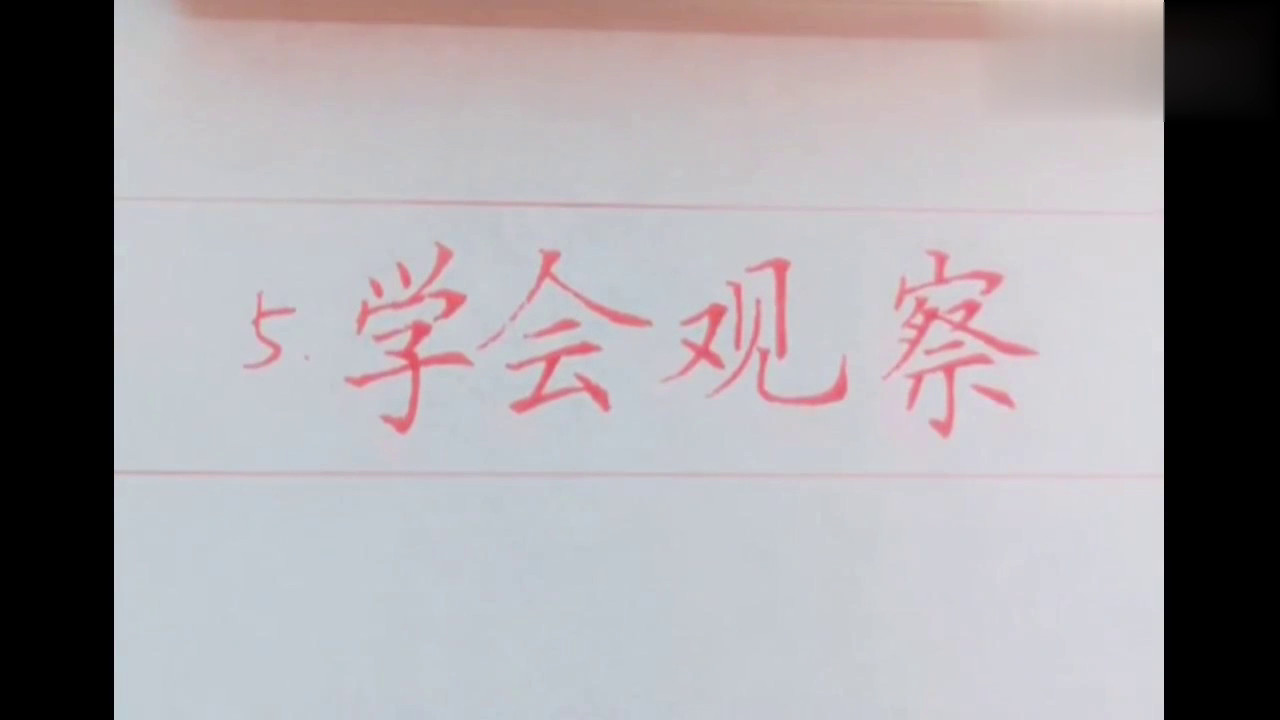 5.学会观察